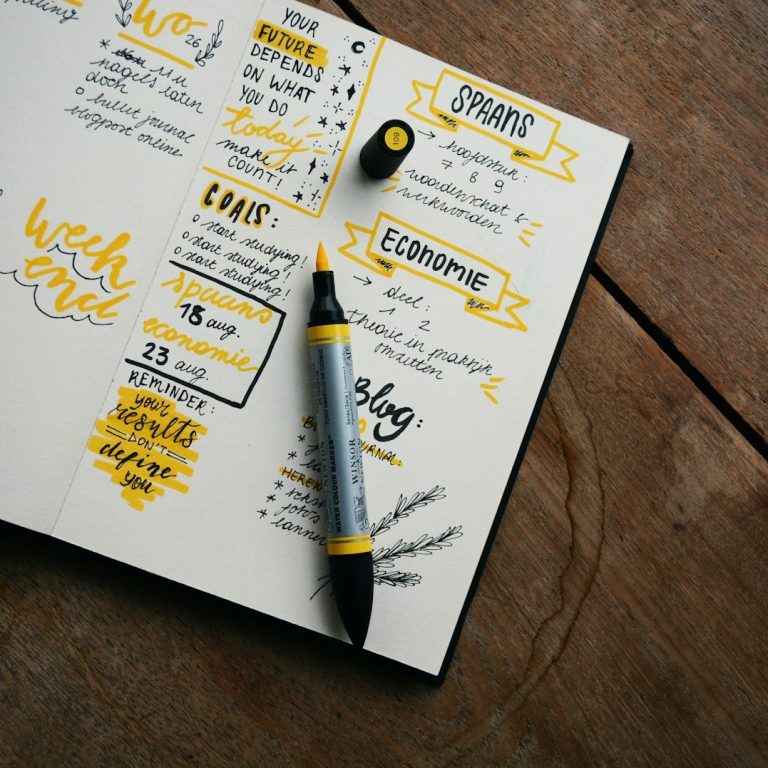 Wo
26
nagels laten
doch
o bullet journal
blogpost online
Week
end
YOUR
FUTURE
DEPENDS
ON WHAT
YOU DO
today
make it
COUNT!
GOALS:
o start studying!
o start studying!
o start studying!
spaans
18 aug.
economie
23 aug.
REMINDER:
your
results
DON'T
define
you
109
SPAANS
→ hoofdstuk:
7 8 9
woordenschat &
werkwoorden
ECONOMIE
→ deel:
1 2
theorie in praktijk
omzetten
Blog:
WATER COLOUR MARKER
WINSOR
NEWTON